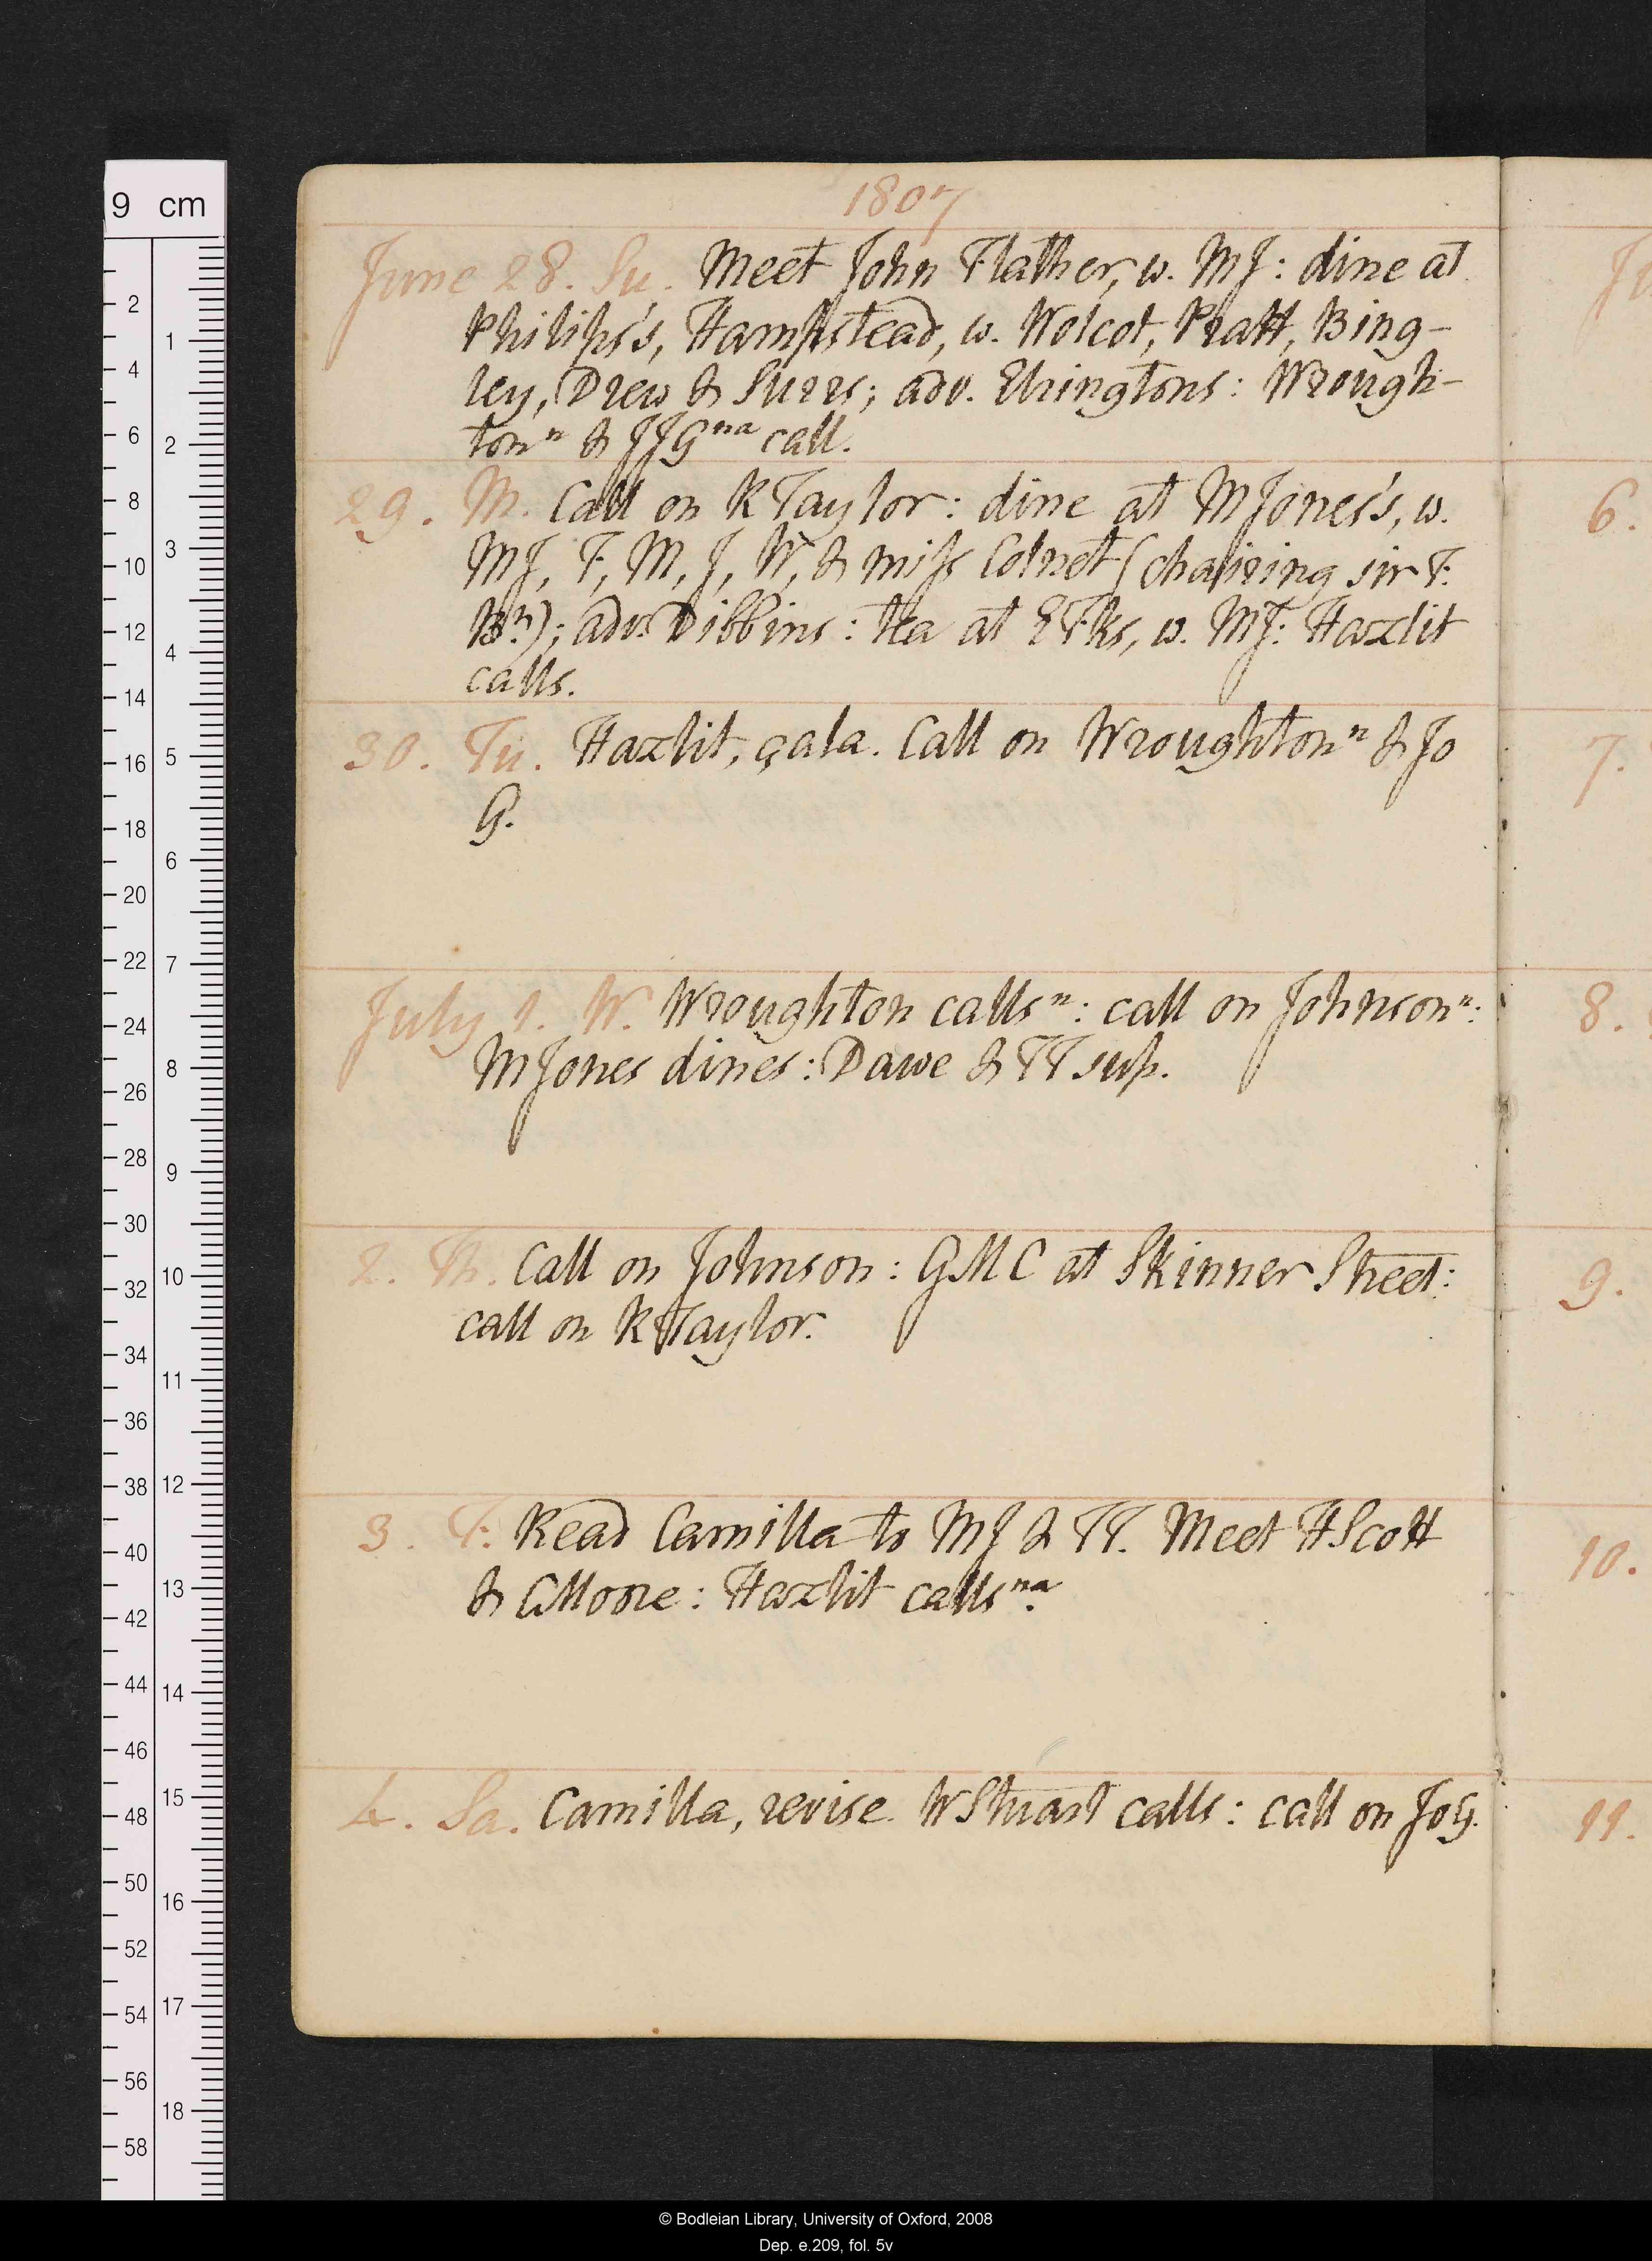 1807
June 28. Su. Meet John Flather, w. MJ: dine at
Philips's, Hampstead, w. Wolcot, Pratt, Bing-
ley, Drew & Surrs; adv. Elringtons: Wrough-
tonⁿ & JJGⁿᵃ call.
29. M. Call on RTaylor: dine at MJones's, w.
MJ, F, M, J, W, & miss Colnet (chairing sir F.
Bᵗ); adv. Dibbins: tea at EFks, w. MJ: Hazlit
calls.
30. Tu. Hazlit, çala. Call on Wroughtonⁿ & Jo
G.
July 1. W. Wroughton callsⁿ: call on Johnsonⁿ:
MJones dines: Dawe & TT sup.
2. Th. Call on Johnson: GMC at Skinner Street:
call on RTaylor.
3. F. Read Camilla to MJ & TT. Meet HScott
& CMoore: Hazlit callsⁿᵃ.
4. Sa. Camilla, revise. WStuart calls: call on JoG.
6.
7.
8.
9.
10.
11.
9 cm
2
4
6
8
10
12
14
16
18
20
22
24
26
28
30
32
34
36
38
40
42
44
46
48
50
52
54
56
58
1
2
3
4
5
6
7
8
9
10
11
12
13
14
15
16
17
18
© Bodleian Library, University of Oxford, 2008
Dep. e.209, fol. 5v